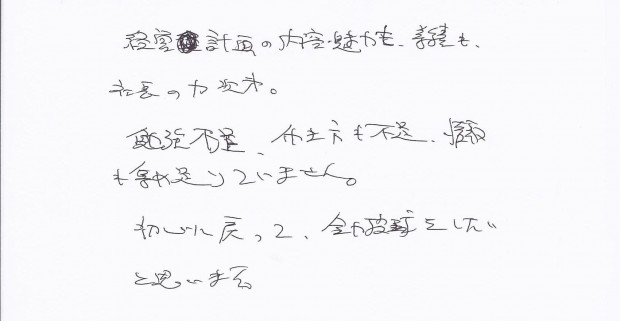 経営計画の内容・魅力も、業績も、
社長の力次第。
勉強不足、仕方も不足、
も全然足りていません。
初心に戻って、全力投球をしたい
と思います